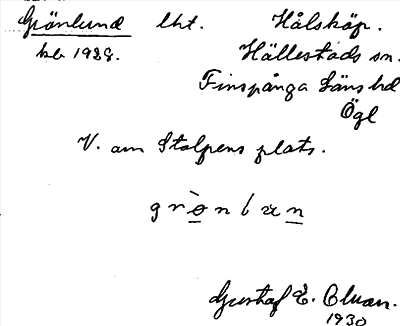 Grönlund lht. Hålsköp.
kb 1928. Hällestads sn.
Finspånga läns hd
Ögl
V. om Stolpens plats.
Gustaf E. Cluan.
1930